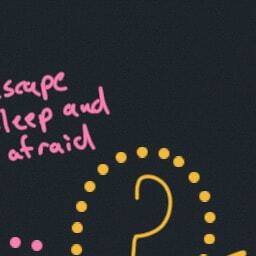 escape
sleep and
afraid
?